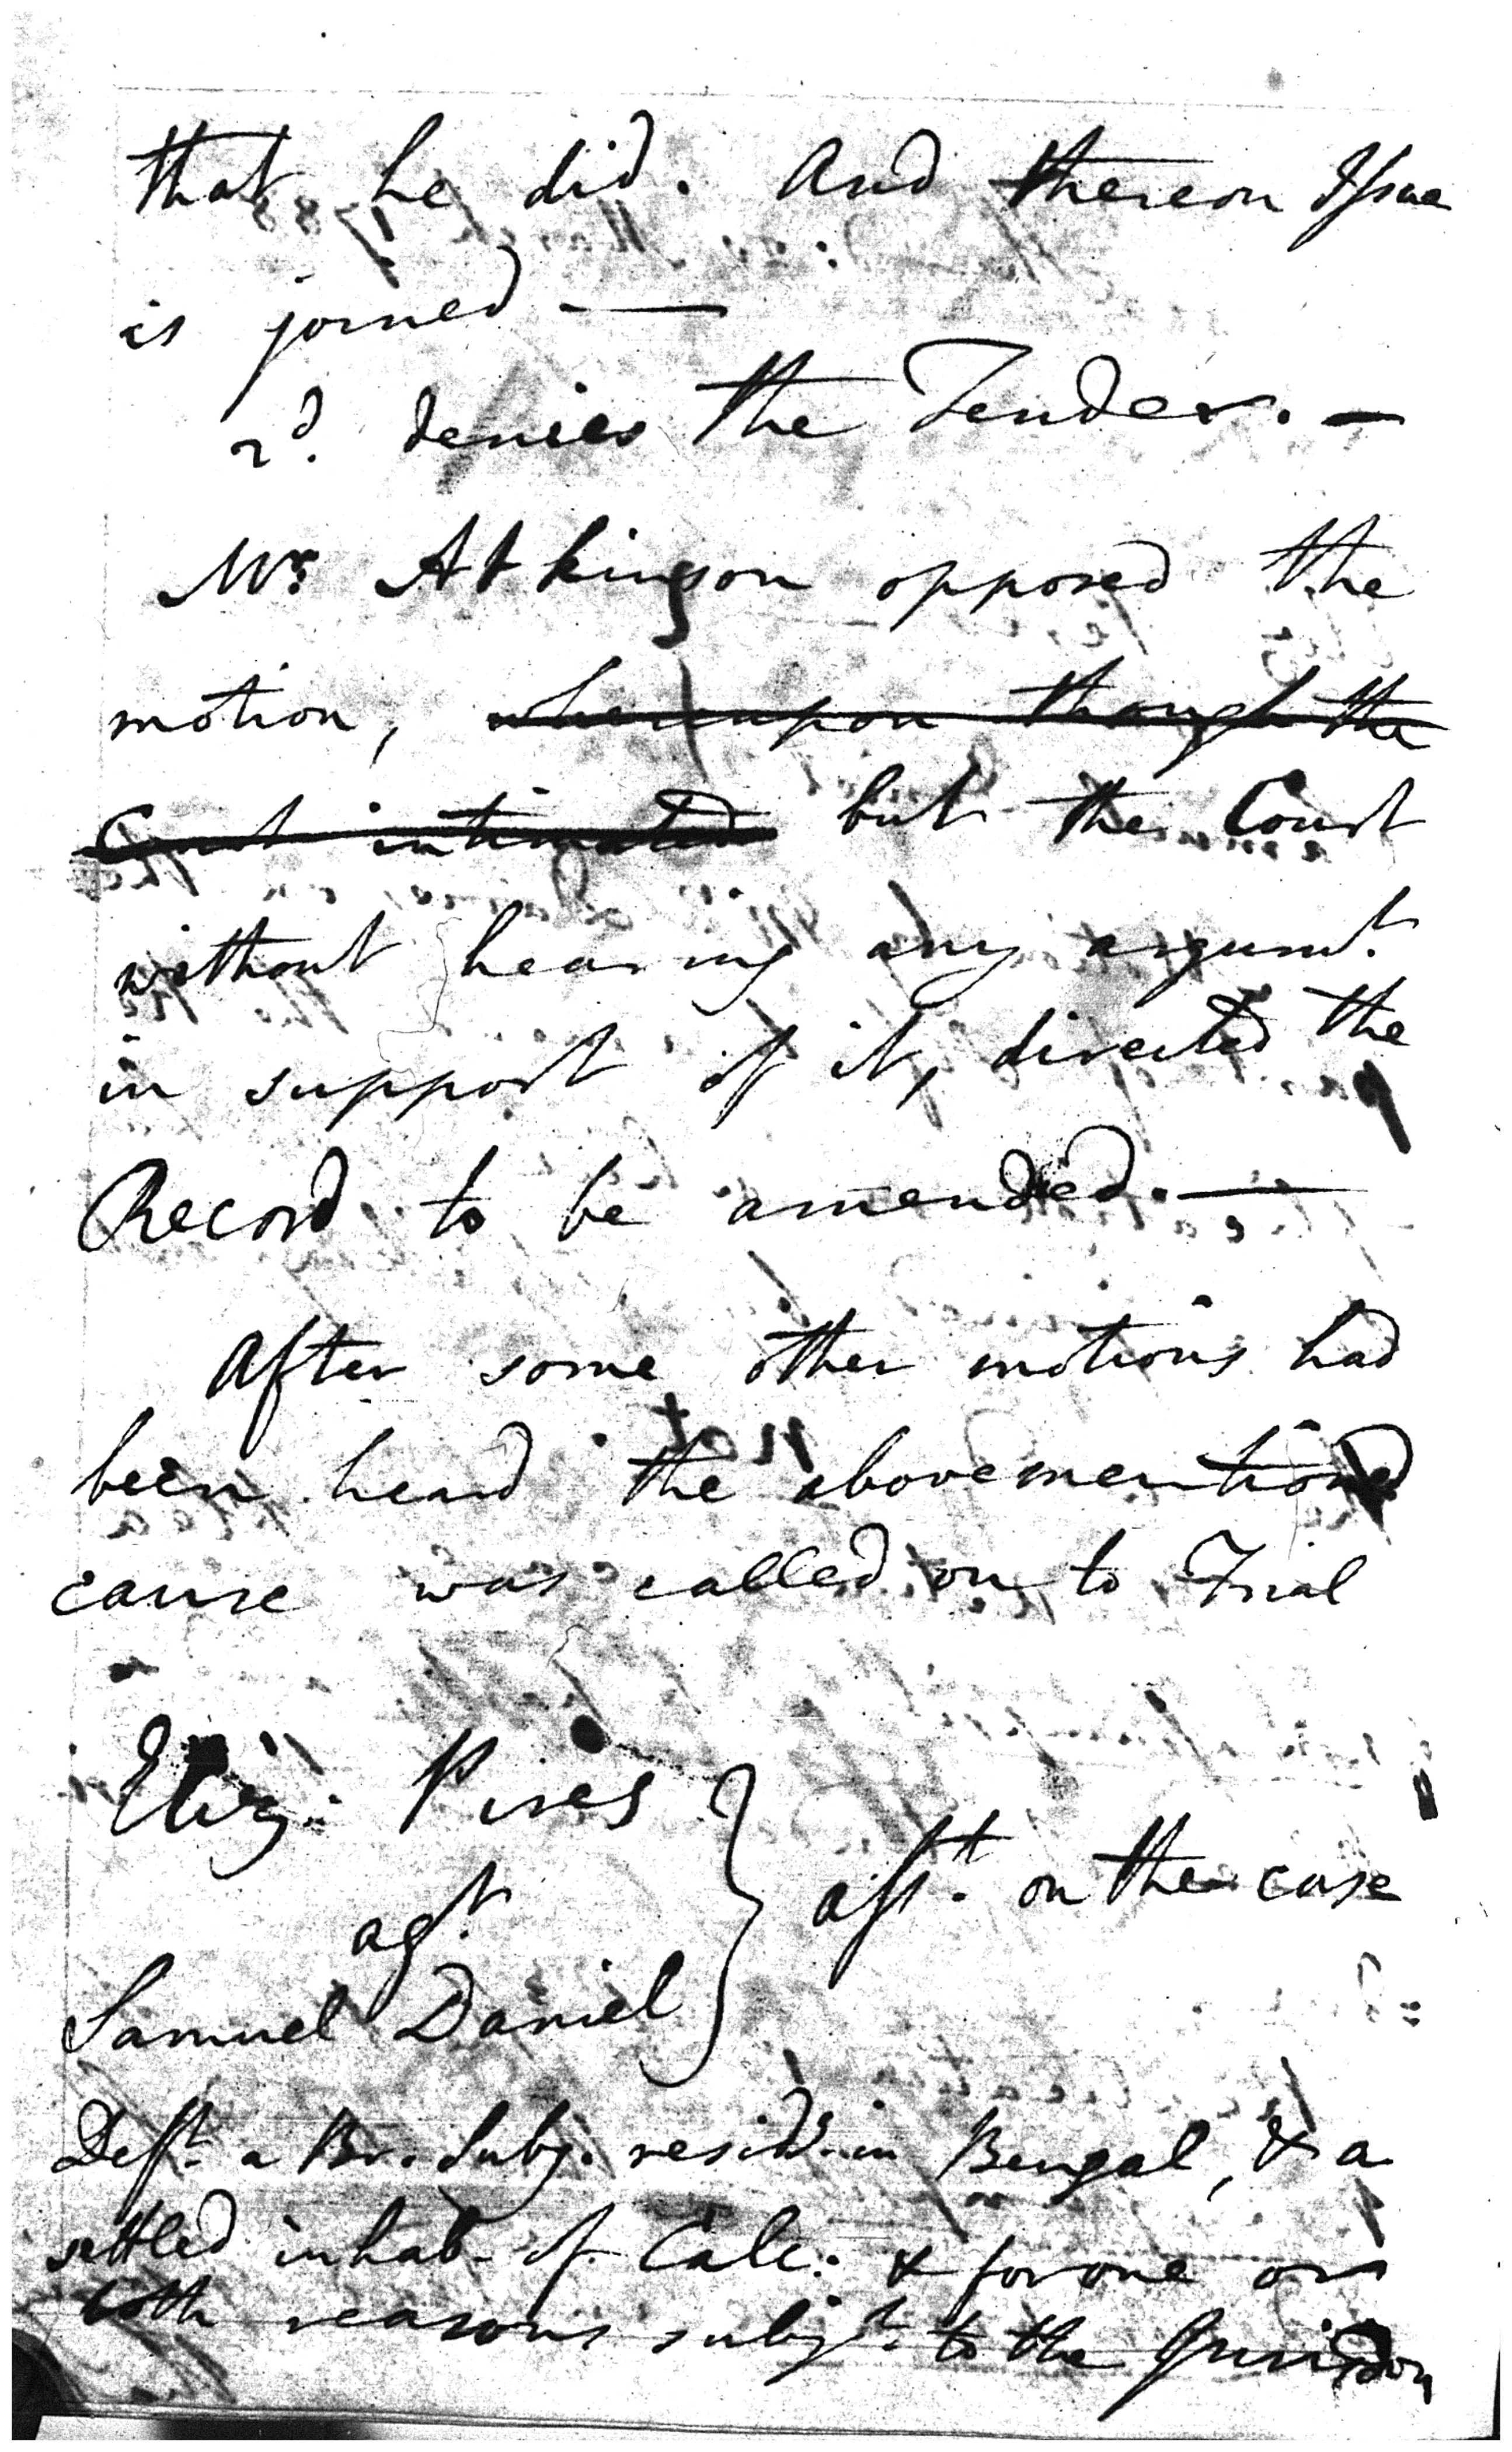 that he did. And thereon Issue
is joined —
2d. denies the Tender. —
Mr. Atkinson opposed the
motion, whereupon though the
Court intimated but the Court
without hearing any argumt.
in support of it, directed the
Record to be amended. —
After some other motions had
been heard the abovementioned
cause was called on to Trial
Eliz. Pires
agt.
Samuel Daniel
asst. on the case
Deft. a Br. Subj. resid. in Bengal, & a
settled inhab. of Calc. & for one or
both reasons subjt. to the Jurisdon